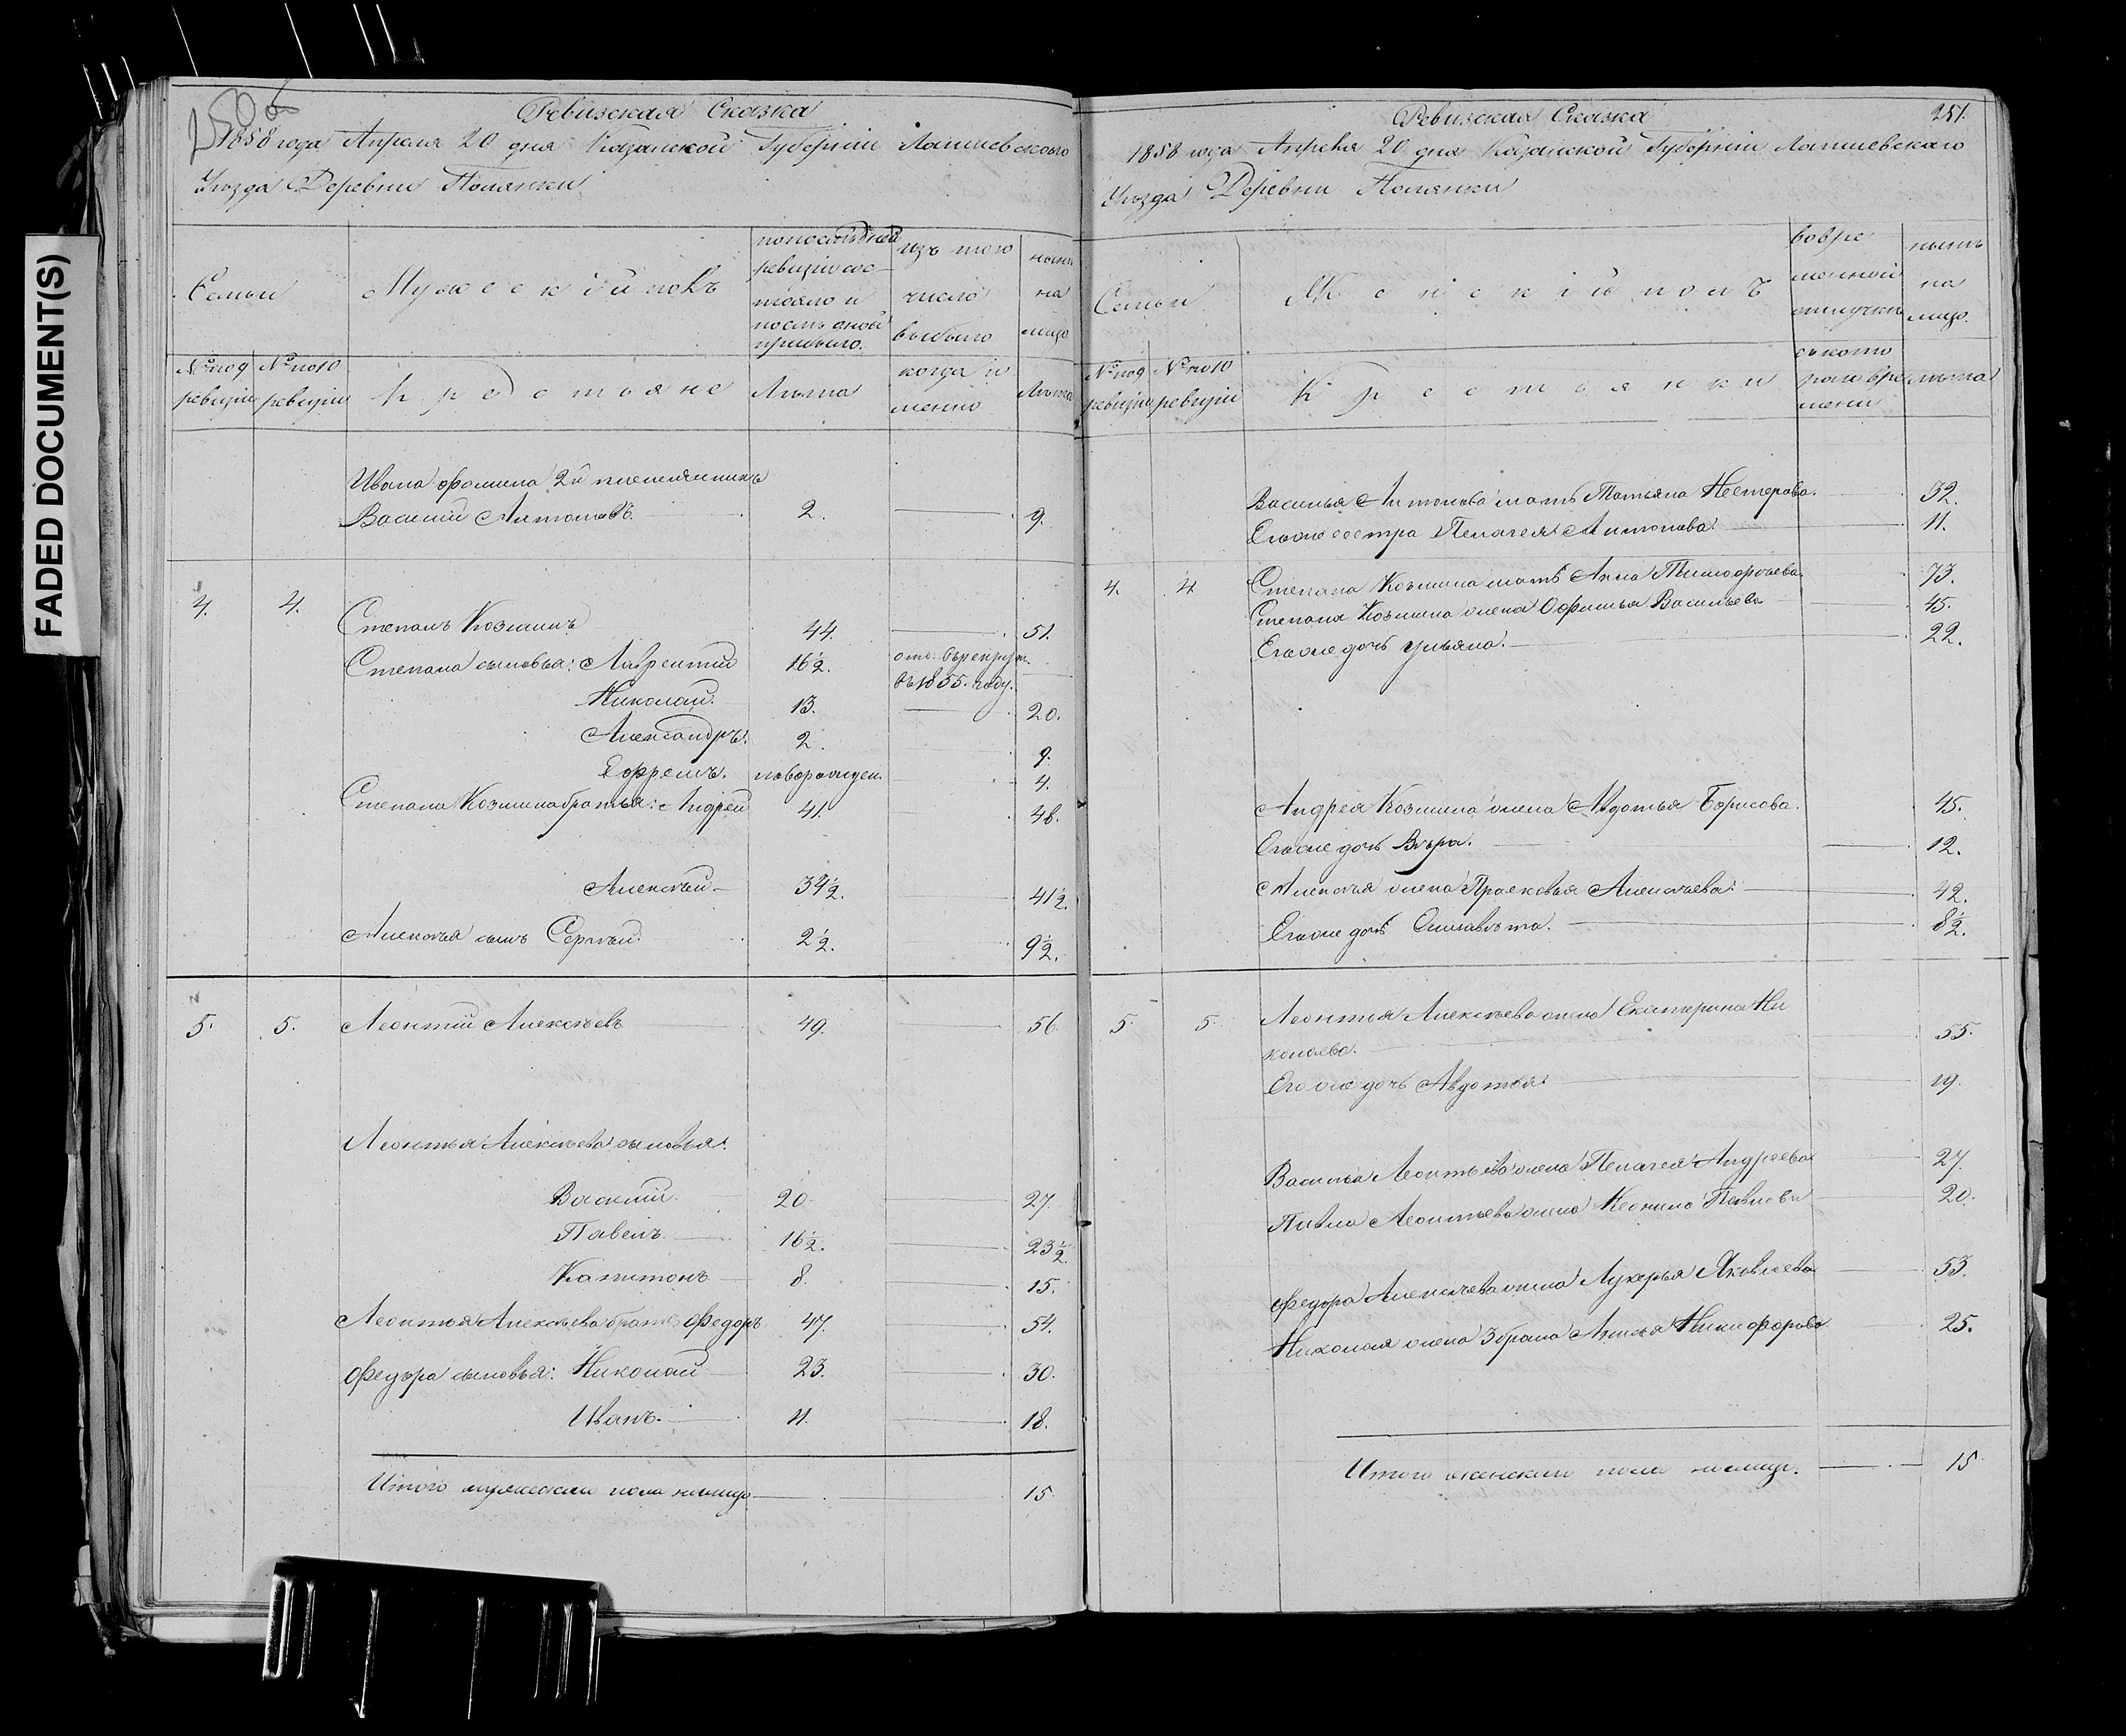 FADED DOCUMENT(S)
250 об
Ревизская Сказка
1858 года Апреля 20 дня Казанской Губерніи Лаишевскаго
Уѣзда Деревни Полянки
Семьи
Мужескій полъ
попослѣдней
ревизіи сос
тояло и
послѣ оной
прибыло.
изъ того
число
выбыло
нынѣ
на
лицо
№ по 9
ревизіи
№ по 10
ревизіи
Крестьяне
Лѣта
когда и
менно
Лѣта
Ивана Фомина 2й племянникъ
Василій Антоновъ. 2. 9.
4. 4.
Степанъ Козминъ 44. 51.
Степана сыновья: Лаврентій 16½. отд. въ рекрут.
въ 1855. году.
Николай. 13. 20.
Александръ. 2. 9.
Ефремъ. новорожден. 4.
Степана Козмина братья: Андрей 41. 48.
Алексѣй 34½. 41½.
Алексѣя сынъ Сергѣй. 2½. 9½.
5. 5. Леонтій Алексѣевъ 49. 56.
Леонтья Алексѣева сыновья:
Василій. 20. 27.
Павелъ. 16½. 23½
Капитонъ 8. 15.
Леонтья Алексѣева братъ Федоръ 47. 54.
Федора сыновья: Николай 23. 30.
Иванъ. 11. 18.
Итого мужеска пола налицо 15.
251.
Ревизская Сказка
1858 года Апреля 20 дня Казанской Губерніи Лаишевскаго
Уѣзда Деревни Полянки
Семьи
Женскій полъ
вовре
менной
отлучкѣ
нынѣ
на
лицо.
№ по 9
ревизіи
№ по 10
ревизіи
Крестьянки
съ кото
раго вре
мени
лѣта
Василья Антонова мать Татьяна Нестерова. 32.
Его же сестра Пелагея Антонова. 11.
4. 4 Степана Козмина мать Анна Тимофеева. 73.
Степана Козмина жена Офимья Васильева 45.
Его же дочь Ульяна. 22.
Андрея Козмина жена Авдотья Борисова. 45.
Его же дочь Вѣра. 12.
Алексѣя жена Прасковья Алексѣева. 42.
Его же дочь Елизавѣта. 8½.
5. 5. Леонтья Алексѣева жена Екатерина Ни
колаева. 55.
Его же дочь Авдотья. 19.
Василья Леонтьева жена Пелагея Андреева 27.
Павла Леонтьева жена Неонила Павлова 20.
Федора Алексѣева жена Лукерья Яковлева 53.
Николая жена 3 брака Анисья Никифорова 25.
Итого женска пола налицо. 15